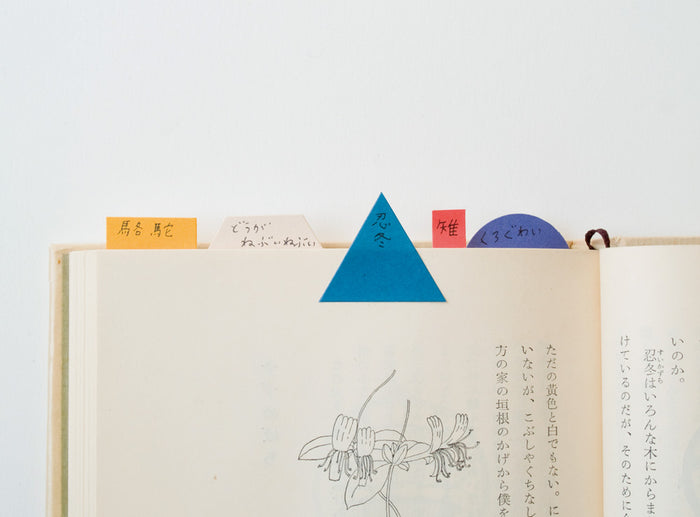 駱駝
どうが
ねぶいねぶい
忍冬
雉
くろぐわい
いのか。
忍冬はいろんな木にからま
すいかずら
けているのだが、そのために
ただの黄色と白でもない。に
いないが、こぶしゃくちなし
方の家の垣根のかげから僕を